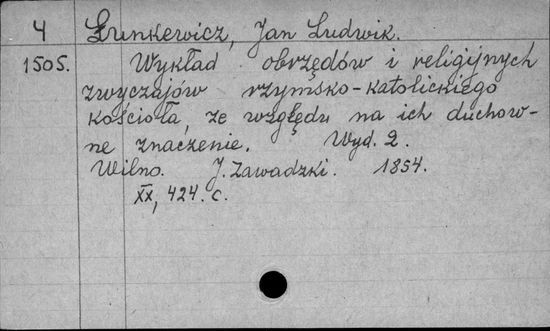 4 Łunkewicz, Jan Ludwik.
1505. Wykład obrzędów i religijnych
zwyczajów rzymsko-katolickiego
kościoła, ze względu na ich duchow-
ne znaczenie. Wyd. 2.
Wilno. J. Zawadzki. 1854.
XX, 424. c.